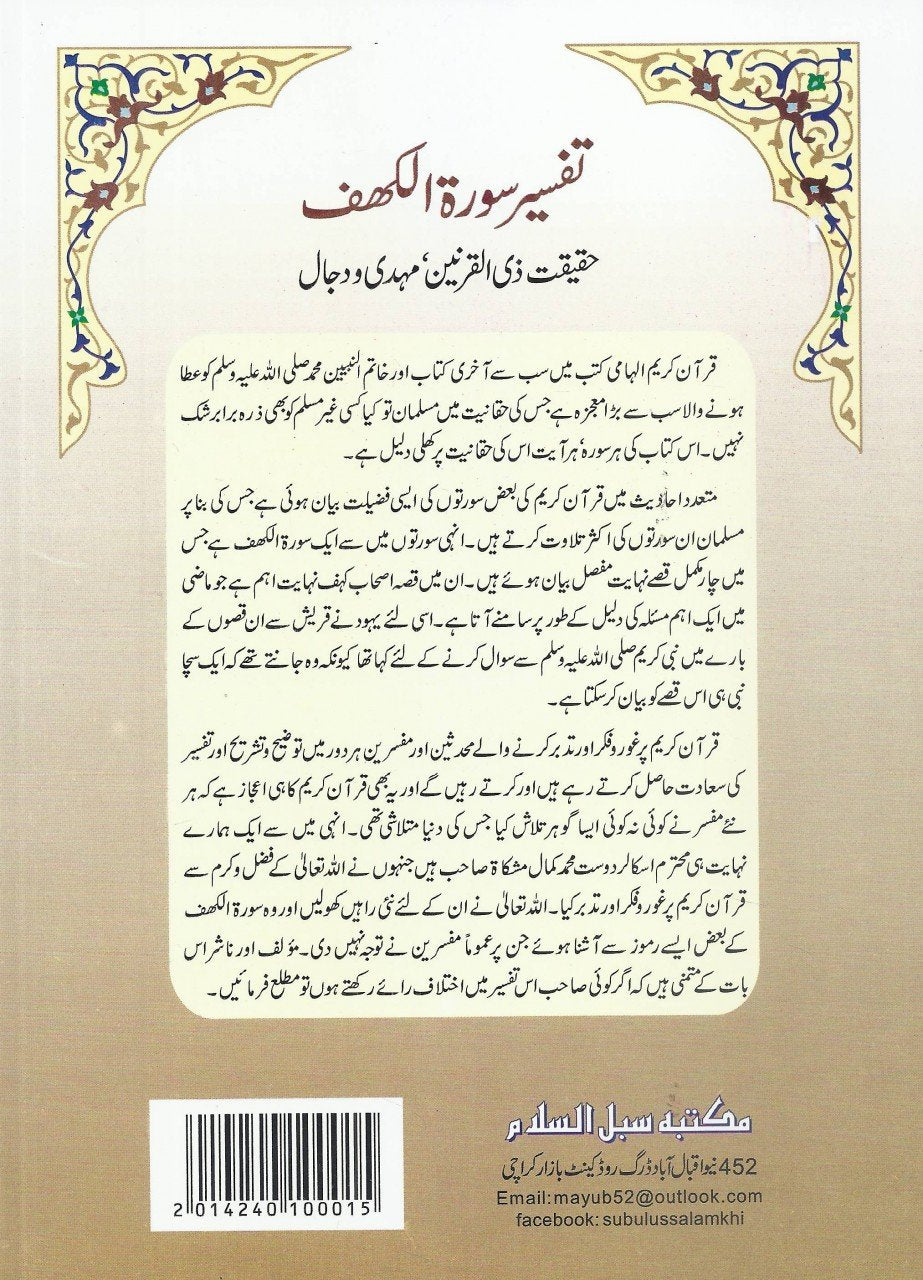 تفسیر سورۃ الکھف
حقیقت ذی القرنین، مہدی و دجال
قرآن کریم الہامی کتب میں سب سے آخری کتاب اور خاتم النبیین محمد صلی اللہ علیہ وسلم کو عطا
ہونے والا سب سے بڑا معجزہ ہے جس کی حقانیت میں مسلمان تو کیا کسی غیر مسلم کو بھی ذرہ برابر شک
نہیں۔ اس کتاب کی ہر سورہ، ہر آیت اس کی حقانیت پر کھلی دلیل ہے۔
متعدد احادیث میں قرآن کریم کی بعض سورتوں کی ایسی فضیلت بیان ہوئی ہے جس کی بنا پر
مسلمان ان سورتوں کی اکثر تلاوت کرتے ہیں۔ انہی سورتوں میں سے ایک سورۃ الکھف ہے جس
میں چار مکمل قصے نہایت مفصل بیان ہوئے ہیں۔ ان میں قصہ اصحاب کہف نہایت اہم ہے جو ماضی
میں ایک اہم مسئلہ کی دلیل کے طور پر سامنے آتا ہے۔ اسی لئے یہود نے قریش سے ان قصوں کے
بارے میں نبی کریم صلی اللہ علیہ وسلم سے سوال کرنے کے لئے کہا تھا کیونکہ وہ جانتے تھے کہ ایک سچا
نبی ہی اس قصے کو بیان کر سکتا ہے۔
قرآن کریم پر غور و فکر اور تدبر کرنے والے محدثین اور مفسرین ہر دور میں توضیح و تشریح اور تفسیر
کی سعادت حاصل کرتے رہے ہیں اور کرتے رہیں گے اور یہ بھی قرآن کریم کا ہی اعجاز ہے کہ ہر
نئے مفسر نے کوئی نہ کوئی ایسا گوہر تلاش کیا جس کی دنیا متلاشی تھی۔ انہی میں سے ایک ہمارے
نہایت ہی محترم اسکالر دوست محمد کمال مشکاۃ صاحب ہیں جنہوں نے اللہ تعالیٰ کے فضل و کرم سے
قرآن کریم پر غور و فکر اور تدبر کیا۔ اللہ تعالیٰ نے ان کے لئے نئی راہیں کھولیں اور وہ سورۃ الکھف
کے بعض ایسے رموز سے آشنا ہوئے جن پر عموماً مفسرین نے توجہ نہیں دی۔ مؤلف اور ناشر اس
بات کے متمنی ہیں کہ اگر کوئی صاحب اس تفسیر میں اختلاف رائے رکھتے ہوں تو مطلع فرمائیں۔
مکتبہ سبل السلام
452 نیو اقبال آباد ڈرگ روڈ کینٹ بازار کراچی
Email:mayub52@outlook.com
facebook: subulussalamkhi
2 014240 100015